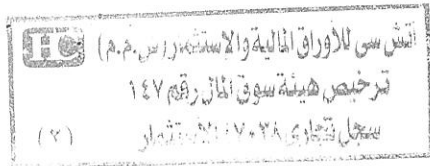 اتش سى للأوراق المالية والإستثمار (س.م.م) HC
ترخيص هيئة سوق المال رقم ١٤٧
سجل تجارى الأستثمار
(٢)